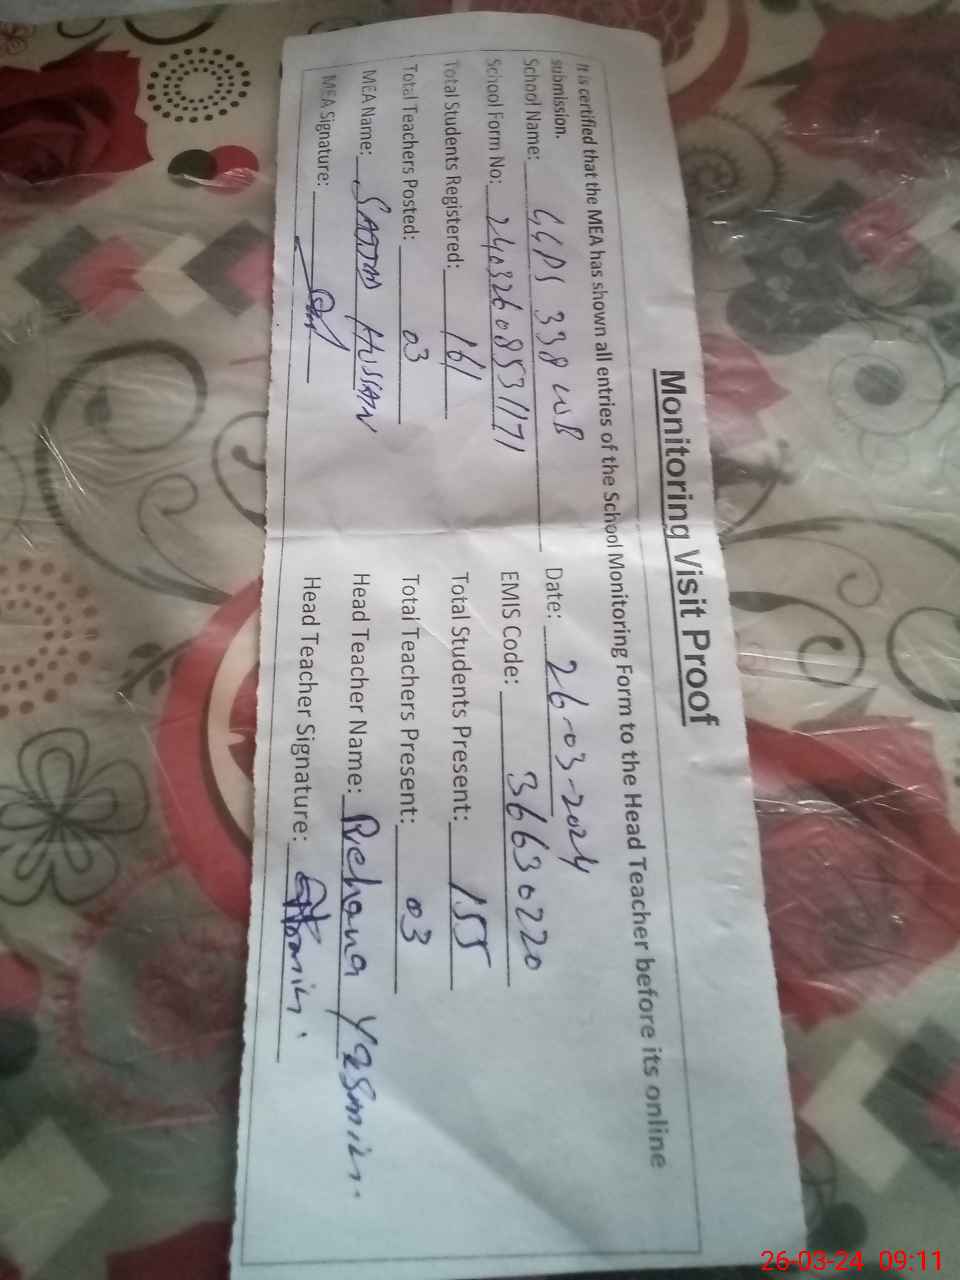 Monitoring Visit Proof
It is certified that the MEA has shown all entries of the School Monitoring Form to the Head Teacher before its online
submission.
School Name: GGPS 338 WB Date: 26-03-2024
School Form No: 24032608531171 EMIS Code: 36630220
Total Students Registered: 161 Total Students Present: 155
Total Teachers Posted: 03 Total Teachers Present: 03
MEA Name: HUSSAIN Head Teacher Name: Rehana Yasmin.
MEA Signature: Head Teacher Signature:
26-03-24 09:11